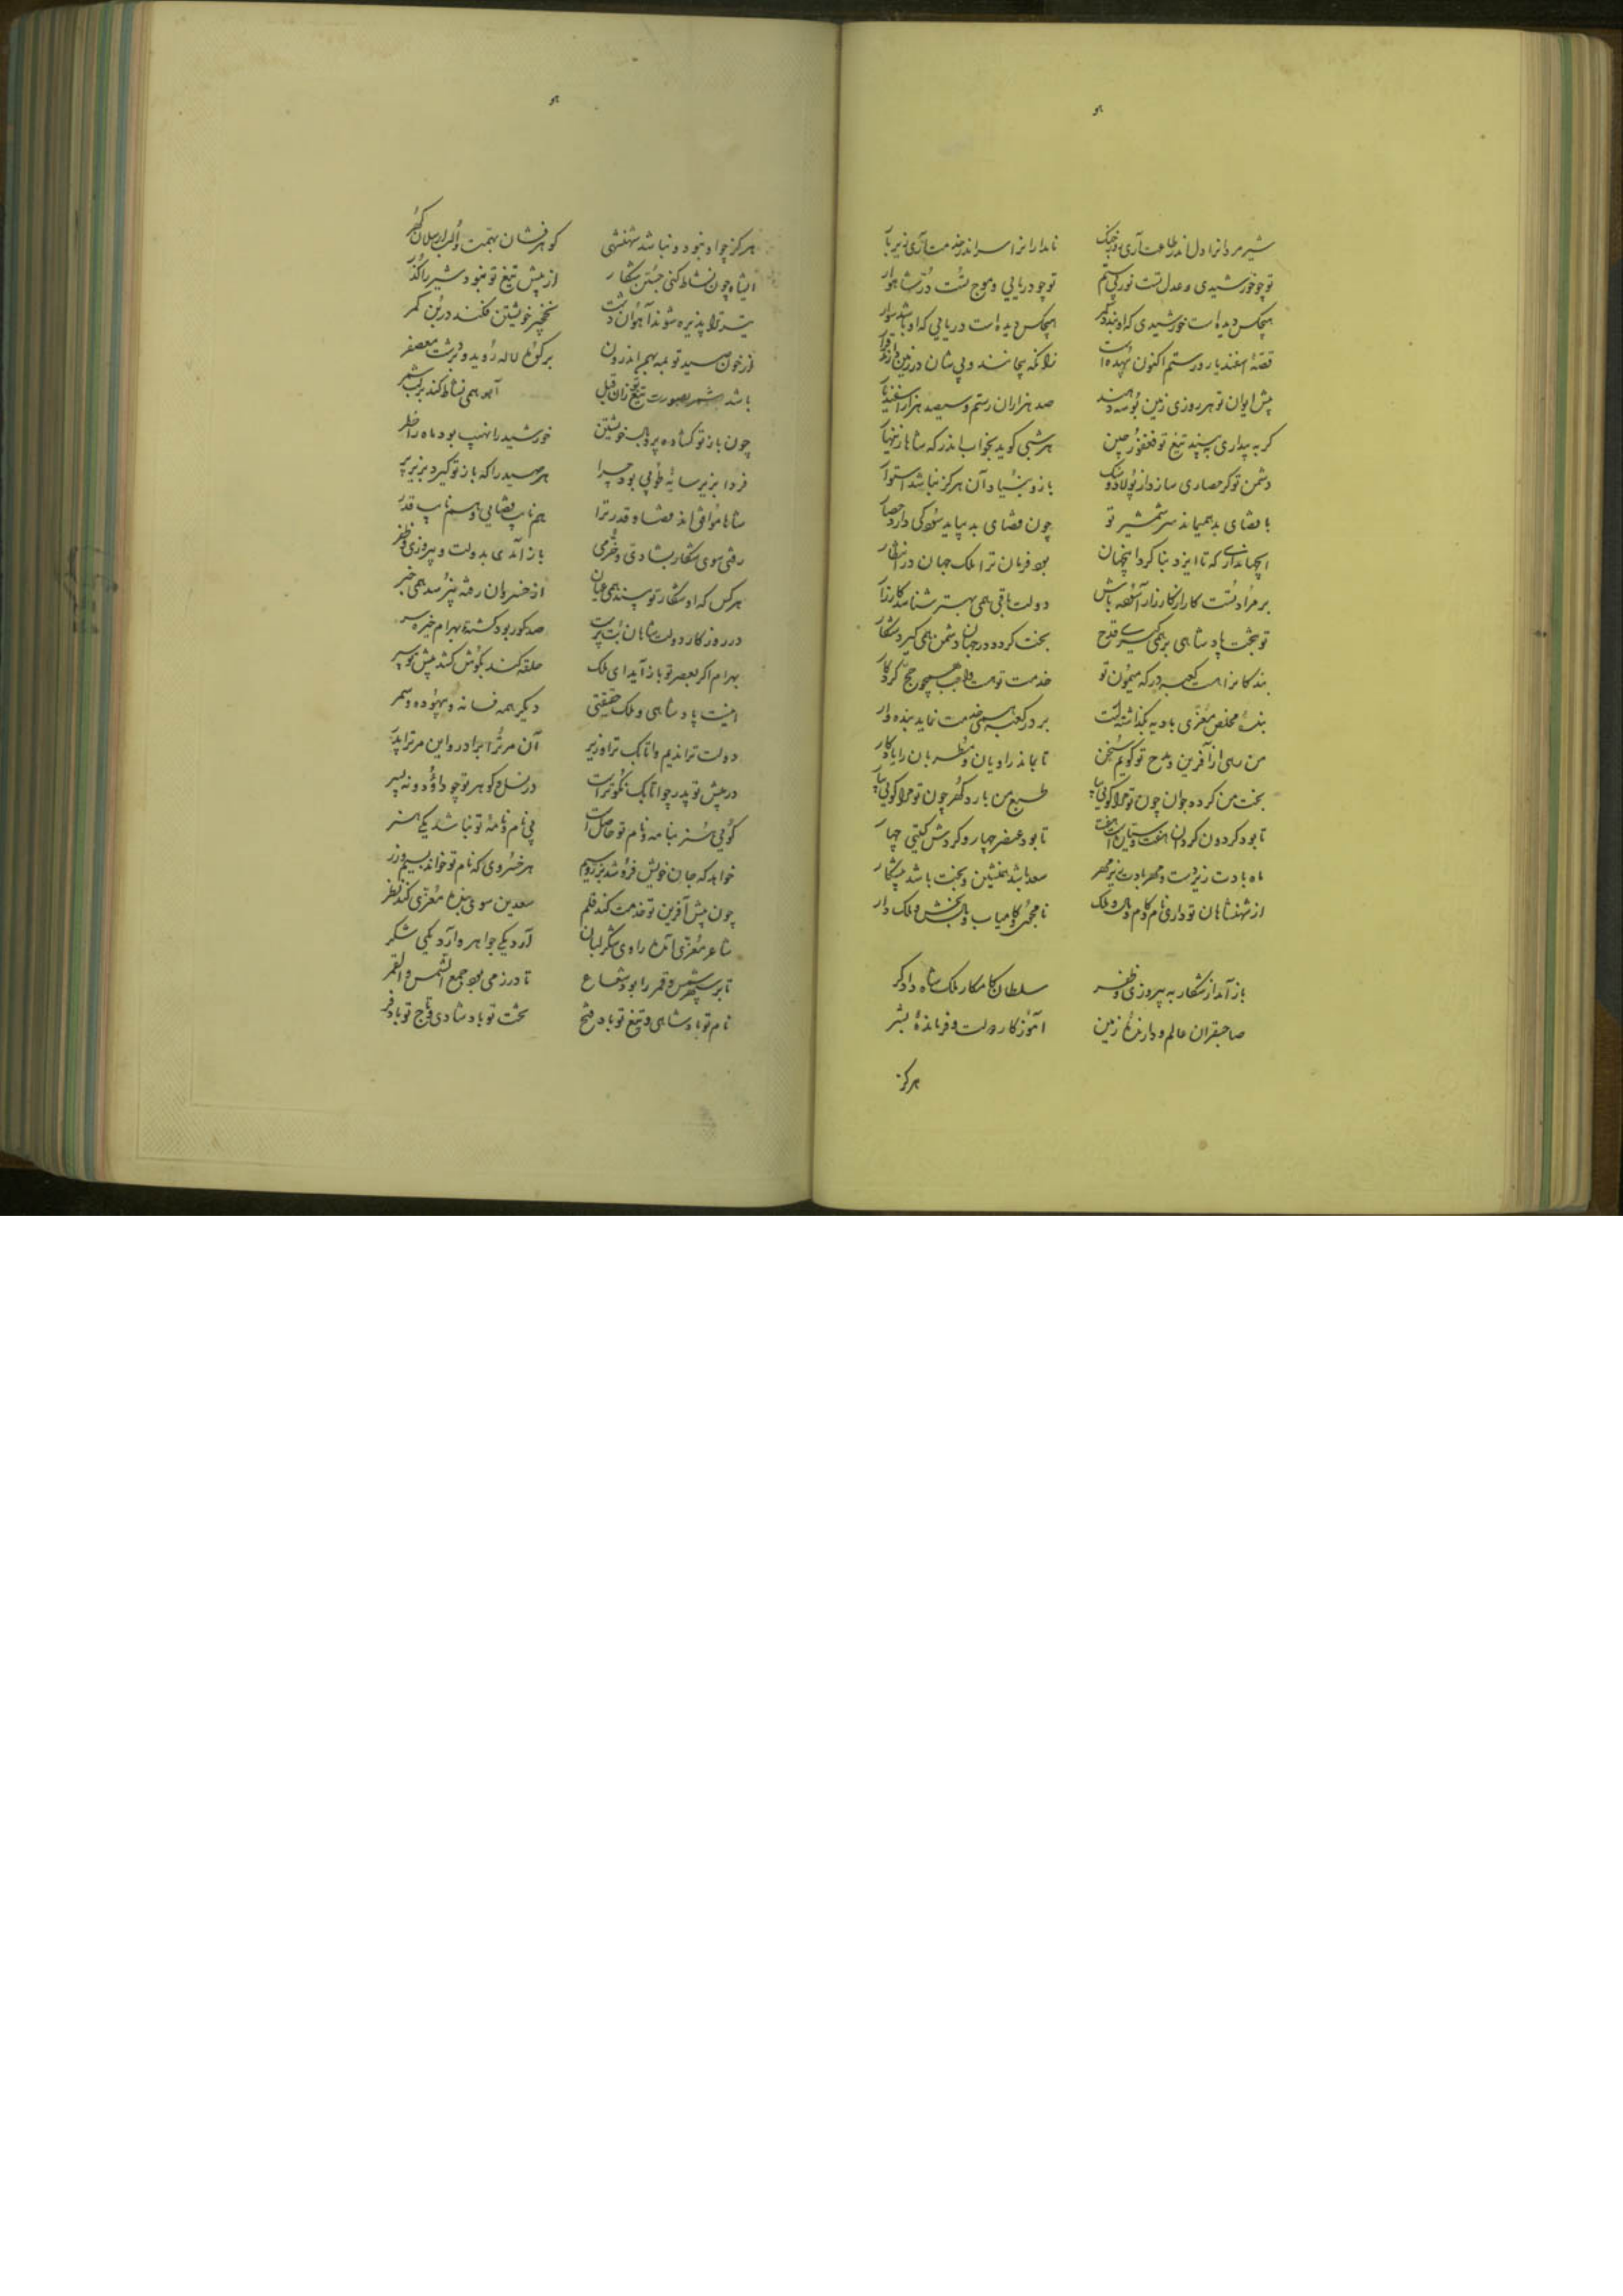 هو
شیر مردانرا دل اندر طاعت آری روز جنک نامدارانرا سر اندر خدمت آری زیر بار
تو چو خورشیدی و عدل تست نور بی ستم تو چو دریایی و موج تست در شاهوار
هیچکس دیده است خورشیدی که او بندد کمر هیچکس دیده است دریایی که او باشد سوار
قصهٔ اسفندیار و رستم اکنون بیهده است زانکه بیجانند و بی شان در زمین
پیش ایوان تو هر روزی زمین بوسه دهند صد هزاران رستم و سیصد هزار اسفندیار
کر به بیداری ببیند تیغ تو فغفور چین هر شبی کوید بخواب اندر که شاها زینهار
دشمن تو کر حصاری سازد از پولاد و سنک باز و بنیاد آن هرکز نباشد استوار
با قضای بد همیماند سر شمشیر تو چون قضای بد بیاید سود کی دارد حصار
ای جهانداری که تا ایزد بنا کرد این جهان بود فرمان ترا ملک جهان در انتظار
بر مراد تست کار از کارزار آسوده باش دولت باقی همی بهتر شناسد کارزار
تو بتخت پادشاهی بر همی کیری قدح بخت کرد در جهان دشمن همی کیرد شکار
بندکانرا هست کعبه درکه میمون تو خدمت تو هست واجب همچو حج کردکار
بندهٔ مخلص معزی بادیه بکذاشته است بر در کعبه همی خدمت نماید بنده وار
من رهی از آفرین و مدح تو کویم سخن تا بماند راویان و مطربان را یادکار
بخت من کرده جوان چون تو مرا کوئی بیا طبع من بارد کهر چون تو مرا کوئی بیار
تا بود کردون کردان هفت و سیارات هفت تا بود عنصر چهار و کردش کیتی چهار
ماه بادت زیر دست و مهر بادت زیر مهر سعد باشد همنشین و بخت باشد پیشکار
از شهنشاهان تو داری نام و کام و مال و ملک نامجوی و کامیاب و مال بخش و ملک دار
باز آمد از شکار به پیروزی و ظفر سلطان کامکار ملک شاه دادکر
صاحبقران عالم و دارندهٔ زمین آموزکار دولت و فرماندهٔ بشر
هرکز
هو
هرکز چو او نبود و نباشد شهنشهی کوهر فشان بهمت و الب ارسلان کهر
ای شاه چون نشاط کنی جستن شکار از پیش تیغ تو نبود شیر را کذر
تیر ترا پذیره شوند آهوان دشت نخجیر خویشتن فکند در بن کمر
از خون صید تو بمه بهم اندرون بر کوه لاله روید و بر دشت معصفر
باشد بصورت تیغ تو زان قبل آهو همی نشاط کند بر لب شمر
چون باز تو کشاده پر و بال خویشتن خورشید را نهیب بود ماه را خطر
فردا بزیر سایهٔ طوبی بود چرا هر صید را که باز تو کیرد بزیر پر
شاها موافق اند قضا و قدر ترا هم نایب قضایی و هم نایب قدر
رفتی سوی شکار بشادی و خرمی باز آمدی بدولت و پیروزی و ظفر
هرکس که او شکار تو بیند همی عیان از خسروان رفته نپرسد همی خبر
در روزکار دولت شاهان بت پرست صد کور بود کشتهٔ بهرام خیره سر
بهرام اکر بعصر تو باز آید ای ملک حلقه کند بکوش کشد پیش تو سپر
اینست پادشاهی و ملک حقیقتی دیکر همه فسانه و بیهوده و سمر
دولت ترا ندیم و اتابک ترا وزیر آن مر ترا برادر و این مر ترا پدر
در پیش تو پدر چو اتابک نکوتر است در نسل و کوهر تو چو داود و نه پسر
کوئی هنر بنامه و نام تو حاصل است بی نام و نامهٔ تو نباشد یکی هنر
هر خسروی که نام تو خواند بسیم و زر خواهد که جان خویش فروشد بزر و سیم
چون پیش آفرین تو خدمت کند قلم سعدین سوی بندهٔ معزی کند نظر
شاعر معزی آنکه راوی شکر لبان آرد یکی جواهر و آرد یکی شکر
تا بر سپهر شمس و قمر را بود شعاع تا در زمی بود جمع الشمس و القمر
نام تو پادشاهی و تیغ تو باد فتح تخت تو باد شادی و تاج تو باد فر